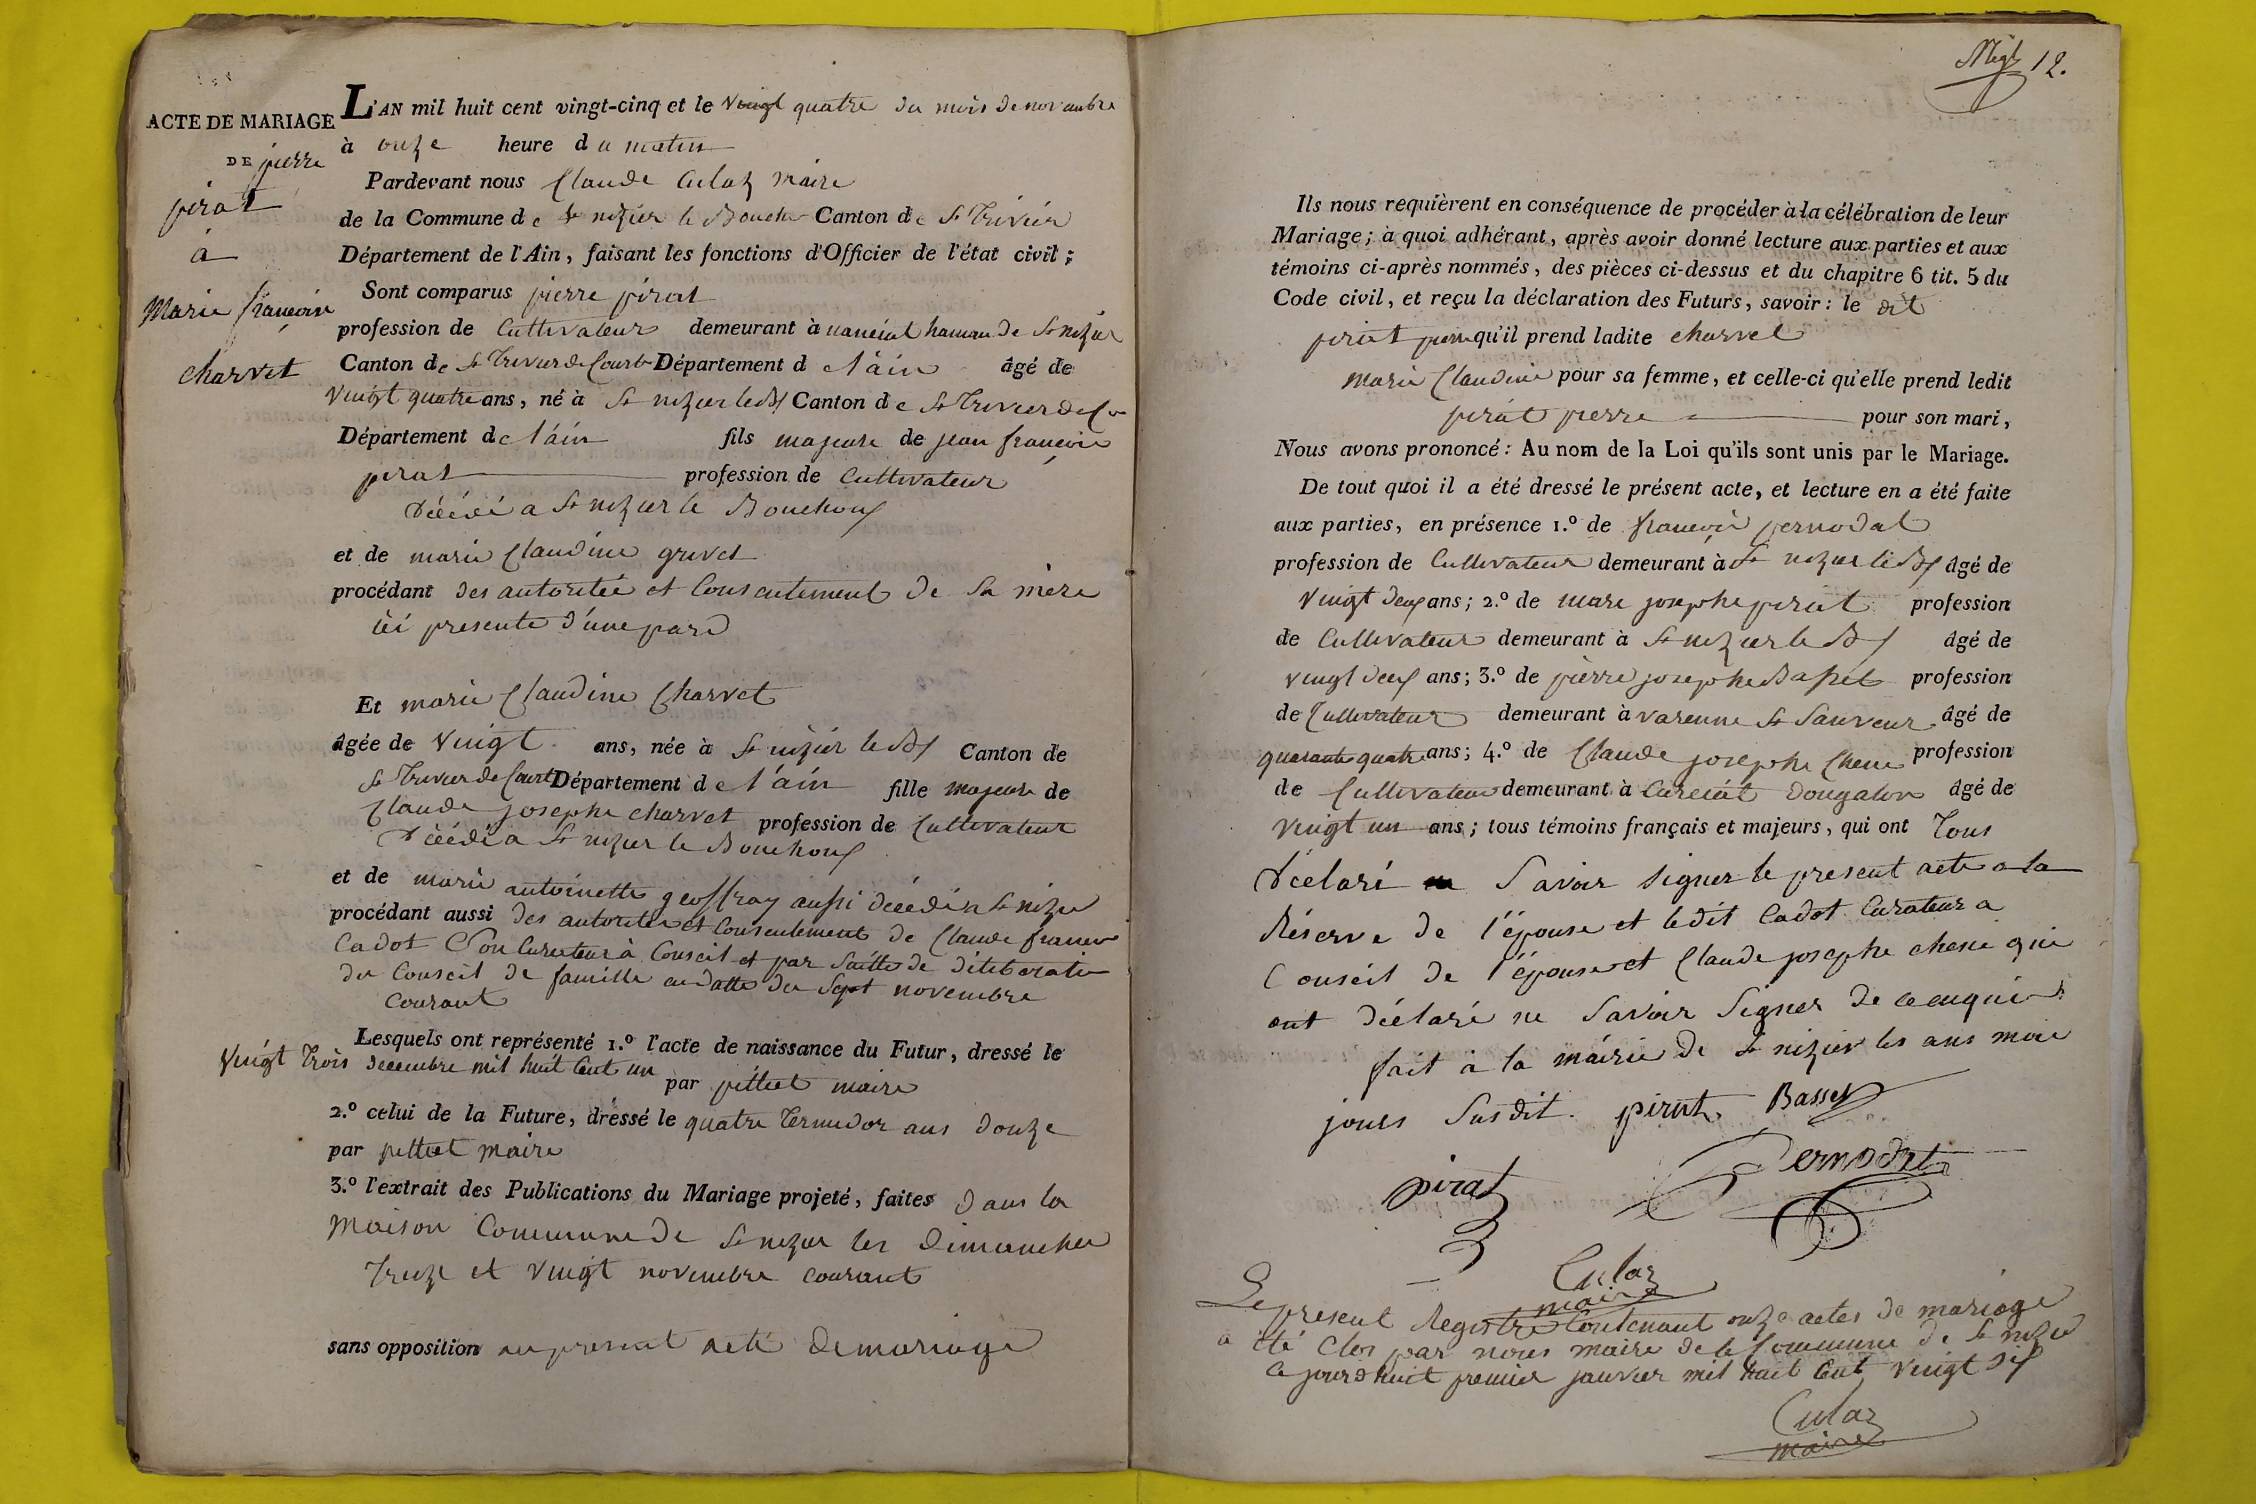 ACTE DE MARIAGE
DE pierre
pirat
à
Marie françoise
charvet
L'AN mil huit cent vingt-cinq et le vingt quatre du mois de novembre
à onze heure du matin
Pardevant nous Claude Culaz maire
de la Commune de St nizier le Bouchoux Canton de St Trivier
Département de l'Ain, faisant les fonctions d'Officier de l'état civil;
Sont comparus pierre pirat
profession de Cultivateur demeurant à hamau de St nizier
Canton de St Trivier de Court Département d l'áin âgé de
Vingt quatre ans, né à St nizier le Bx Canton de St Trivier de Co
Département de l'áin fils majeure de jean françois
pirat profession de Cultivateur
décédé a St nizier le Bouchoux
et de marie Claudine grivet
procédant des autoritée et Consentement de Sa mère
ici presente d'une pard
Et marie Claudine Charvet
âgée de Vingt ans, née à St nizier le Bx Canton de
St Trivier de Court Département de l'áin fille majeure de
Claude josephe charvet profession de Cultivateur
décédé a St nizier le Bouchoux
et de marie antoinette geoffray aussi décédé a St nizier
procédant aussi des autorités et Consentement de Claude francois
Cadot Son Curateur à Conseil et par Suitte de déliberation
du Conseil de famille en datte du Sept novembre
Courant
Lesquels ont représenté 1.º l'acte de naissance du Futur, dressé le
Vingt Trois decembre mil huit Cent un par pittiet maire
2.º celui de la Future, dréssé le quatre Termidor ans douze
par pittiet maire
3.º l'extrait des Publications du Mariage projeté, faites dans la
Maison Commune de St nizier les dimanches
Treize et Vingt novembre Courant
sans opposition au present acte de mariage
12.
Ils nous requièrent en conséquence de procéder à la célébration de leur
Mariage; à quoi adhérant, après avoir donné lecture aux parties et aux
témoins ci-après nommés, des pièces ci-dessus et du chapitre 6 tit. 5 du
Code civil, et reçu la déclaration des Futurs, savoir: le dit
pirat pierre qu'il prend ladite charvet
Marie Claudine pour sa femme, et celle-ci qu'elle prend ledit
pirat pierre pour son mari,
Nous avons prononcé: Au nom de la Loi qu'ils sont unis par le Mariage.
De tout quoi il a été dressé le présent acte, et lecture en a été faite
aux parties, en présence 1.º de françois pernodat
profession de Cultivateur demeurant à St nizier le Bx âgé de
Vingt deux ans; 2.º de marie josephe pirat profession
de Cultivateur demeurant à St nizier le Bx âgé de
vingt deux ans; 3.º de pierre josephe Basset profession
de Cultivateur demeurant à varenne St Sauveur âgé de
quarante quatre ans; 4.º de Claude josephe Chene profession
de Cultivateur demeurant à Curciát dongalon âgé de
Vingt un ans; tous témoins français et majeurs, qui ont Tous
déclaré Savoir Signer le present acte a la
Réserve de l'épouse et ledit Cadot Curateur a
Conseil de l'épouse et Claude josephe chene qui
ont déclaré ne Savoir Signer de ce enquis
fait à la máirie de St nizier les ans mois
jours Susdit. pirat Basset
pirat Pernodat
Culaz
maire
Le present Registre Contenant onze actes de mariage
a été Clos par nous maire de la Commune de St nizier
Ce jourdhuit premier janvier mil huit Cent Vingt Six
Culaz
maire